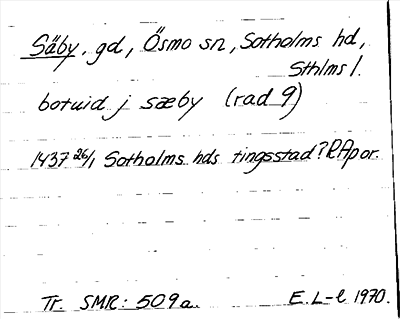 Säby, gd, Ösmo sn, Sotholms hd,
Sthlms l.
botuid j sæby (rad 9)
1437 26/1 Sotholms hds tingsstad? RAp or.
Tr. SMR: 509 a. E. L-l 1970.